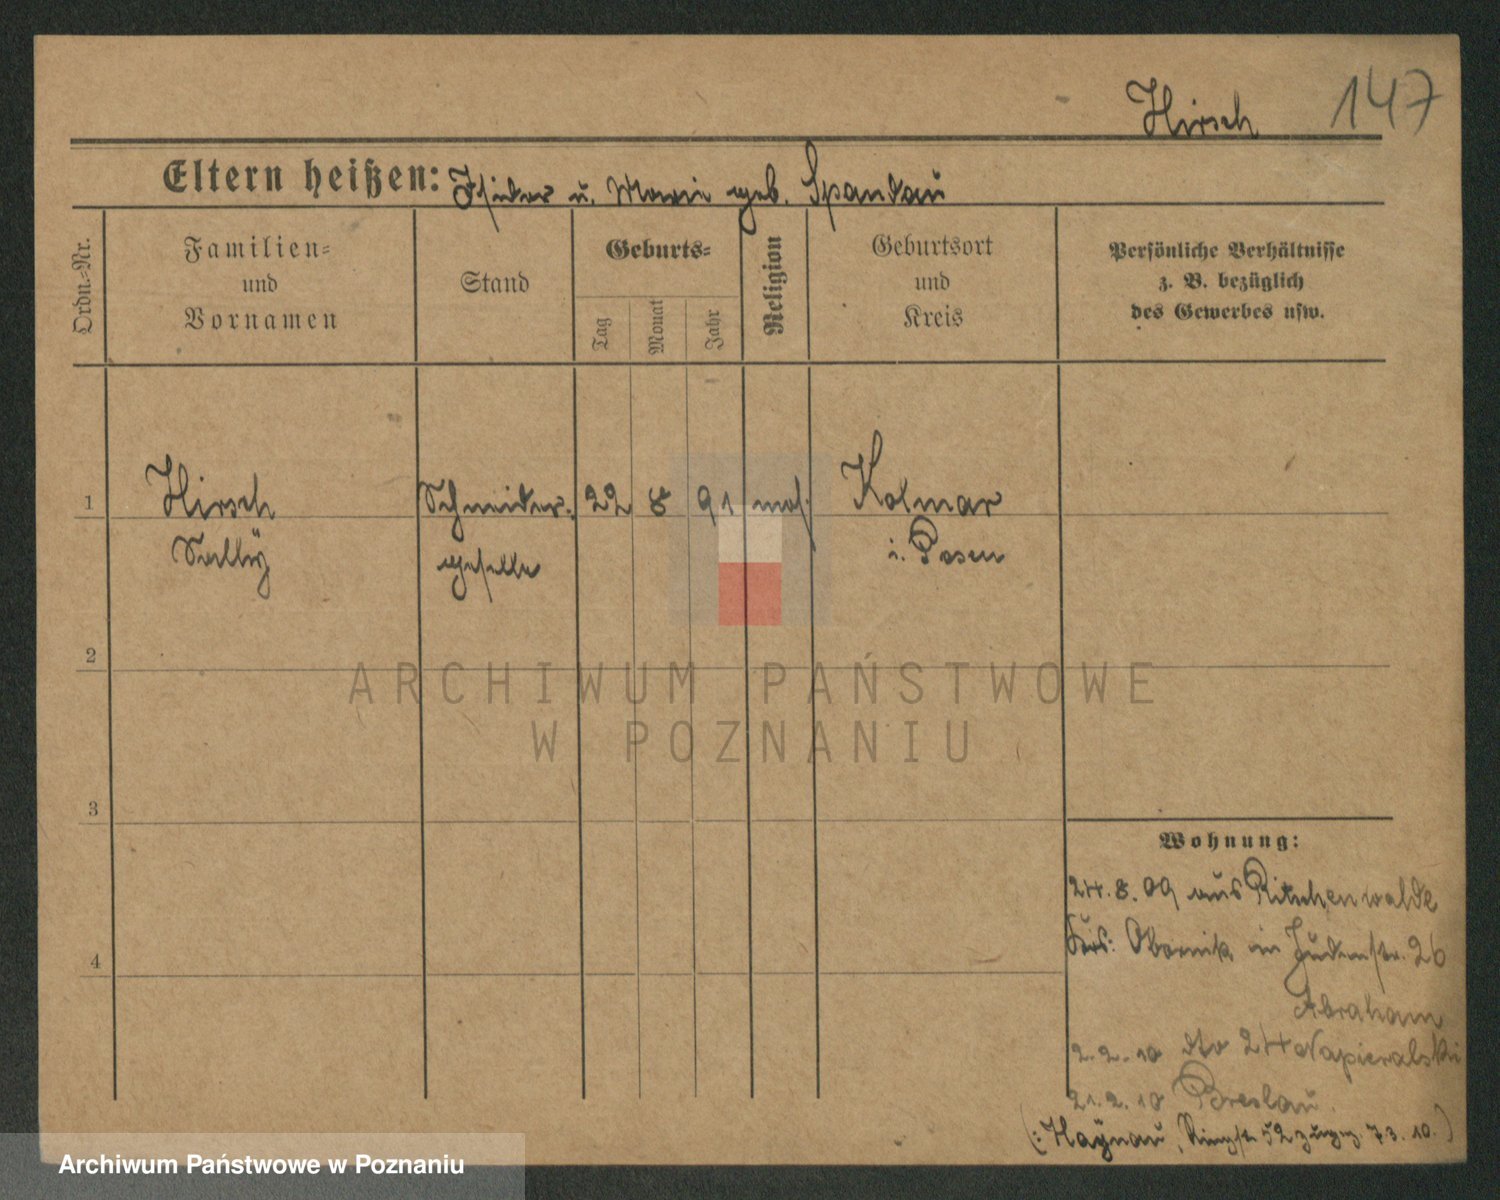 Hirsch 147
Eltern heißen: Isidor u. Marie geb. Spandau
Ordn.-Nr.
Familien-
und
Vornamen
Stand
Geburts-
Tag
Monat
Jahr
Religion
Geburtsort
und
Kreis
Persönliche Verhältnisse
z. B. bezüglich
des Gewerbes usw.
1 Hirsch Schneider- 22 8 91 mos. Kolmar
Sally geselle i. Posen
2
3
4
Wohnung:
24.8.09 aus Ritschenwalde
Krs: Obornik in Judenstr. 26
Abraham
2.2.10 dto 24 Napieralski
21.2.10 Breslau.
(: Haynau, Ringstr. 52 7.3.10.)
ARCHIWUM PAŃSTWOWE
W POZNANIU
Archiwum Państwowe w Poznaniu